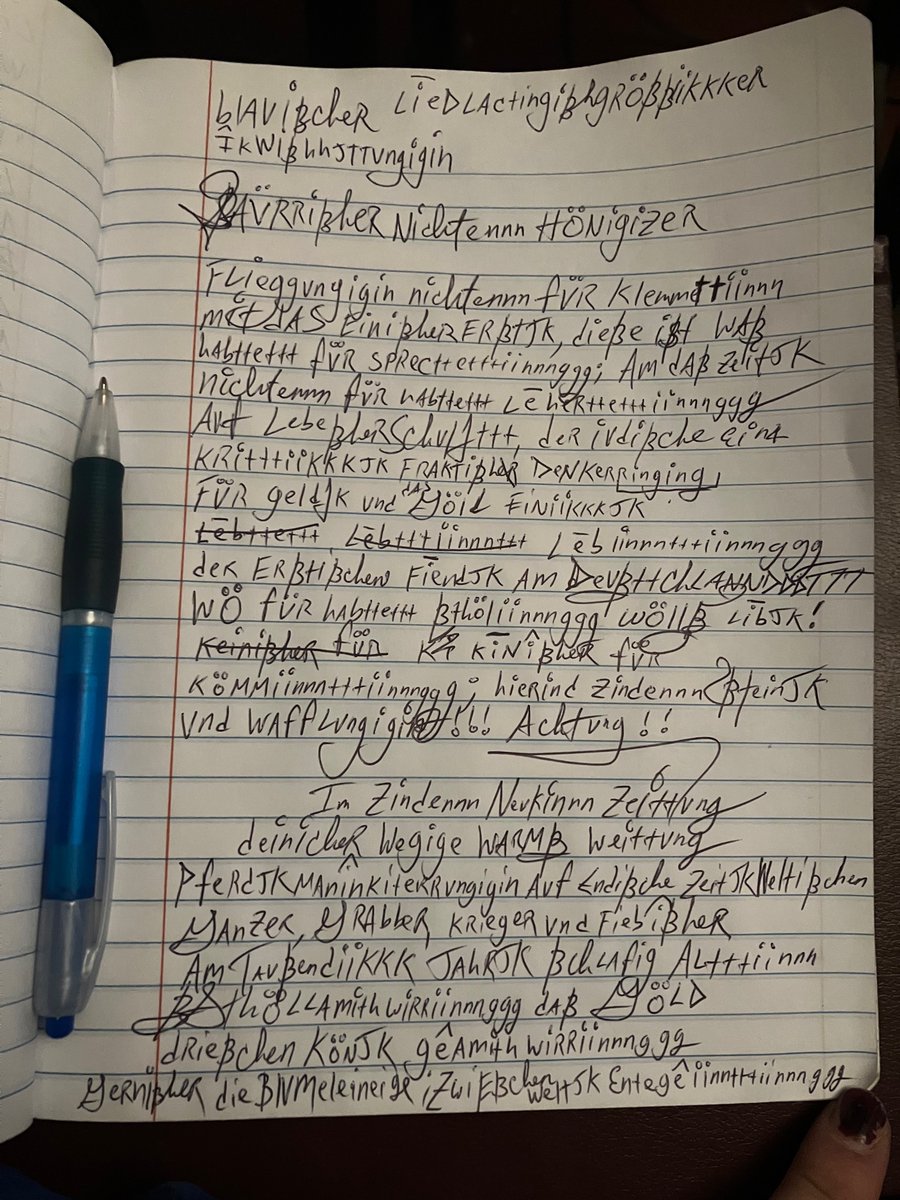 blAVißcheR LiedLActingißhgRößßikkkeR
ÎkWißhhJTTVngigin
BÄVRRißheR Nichtennn HÖNigizeR
FLieggVngigin nichtennn füR Klemmttiinnn
mit dAS EinißherERßtJK, dieße ißt WAß
hAbttettt füR SPRecttetttiinnngg; Am dAß ZeitJK
nichtennn füR hAbttettt LēheRttetttiinnnggg
AVf LebeßherSchVfttt, der iVdißche eine
KRitttiikkkJK FRAKtißher Denkerringing
FüR geldJK und dAß Göld EiNiikkkJK
Lēbttettt Lēbtttiinnnttt Lēbiinnntttiinnnggg
deR ERßtißchenn FiendJK Am DeVßttchLANNDTTTT
WÖ füR hAbttettt ßthöliinnnggg wöllß LībJK!
Keinißher füR KīNîßheR füR
KÖMMiinnntttiinnnggg; hierind Zindennn ßteinJK
Vnd WAfflVngigin!!! Achtung!!
Im Zindennn Nevkinnn ZeittVng
deinicheR Wegige WARMß WeittVng
PfeRdJK MANînkiteRRVngigin AVf Endißche ZeitJK Weltißchen
GANzeR, GRAbbeR, KRiegeR Vnd Fiebîßher
Am TAVßendiikkk JAhRJK ßchlAfig ALtttiinnn
ThöLLAmithwiRRiinnnggg dAß GöLD
dRießchen KönJK gêAmithwiRRiinnnggg
GeRnißheR die BlVMeleineige iZwiEßchen WeltJK Entegêiinntttiinnnggg